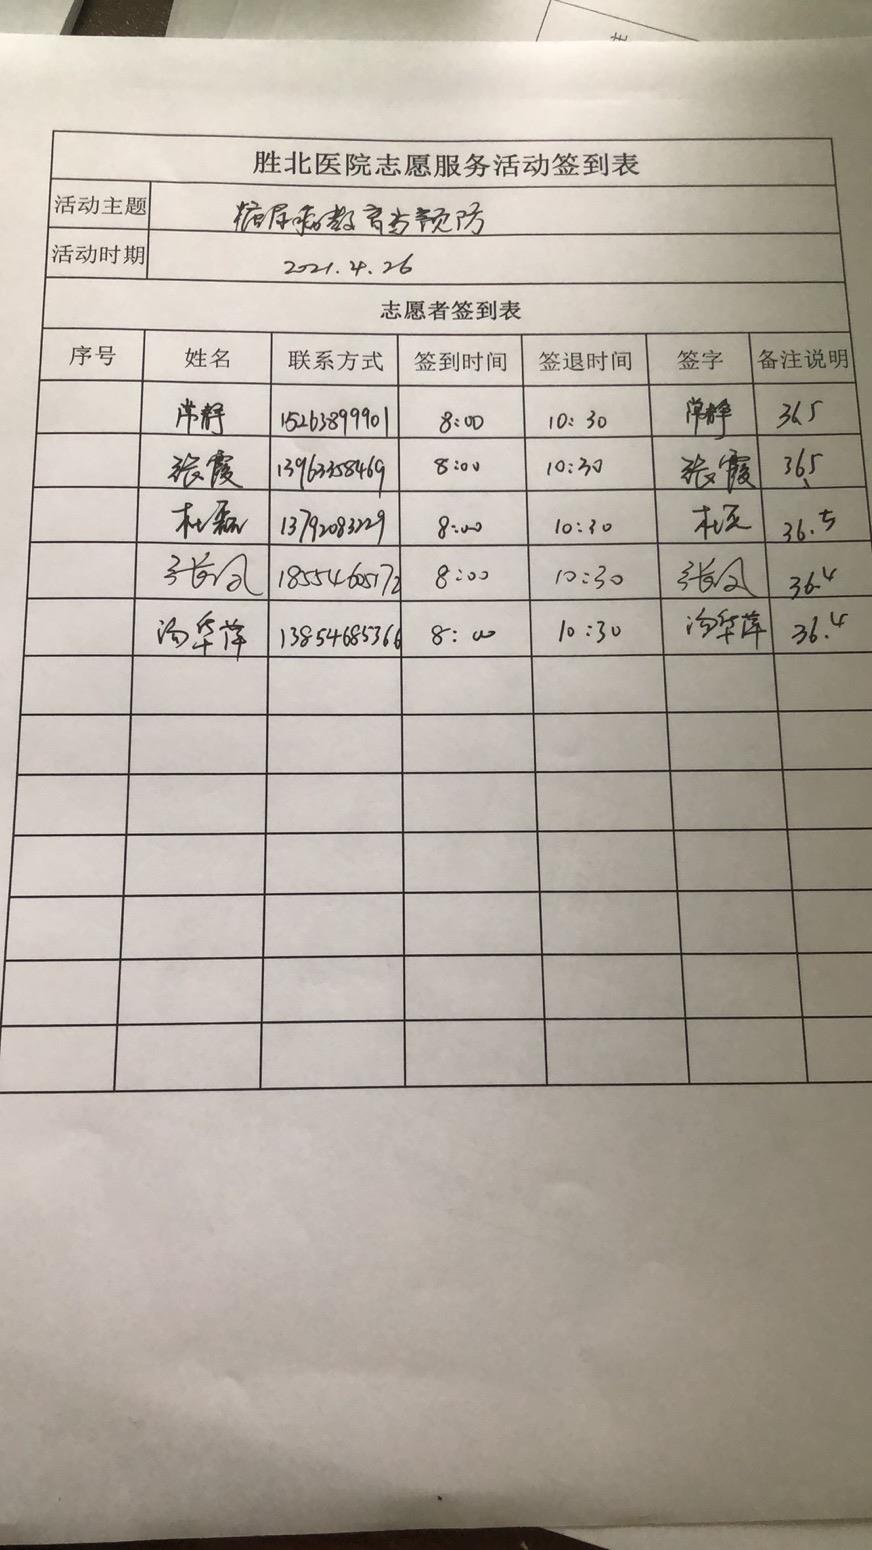 胜北医院志愿服务活动签到表
活动主题 糖尿病教育与预防
活动时期 2021.4.26
志愿者签到表
序号 姓名 联系方式 签到时间 签退时间 签字 备注说明
常静 15263899901 8:00 10:30 常静 36.5
张霞 13963358469 8:00 10:30 张霞 36.5
杜磊 13792083229 8:00 10:30 36.5
张凤 18554605172 8:00 10:30 张凤 36.4
汤华萍 13854685366 8:00 10:30 汤华萍 36.4